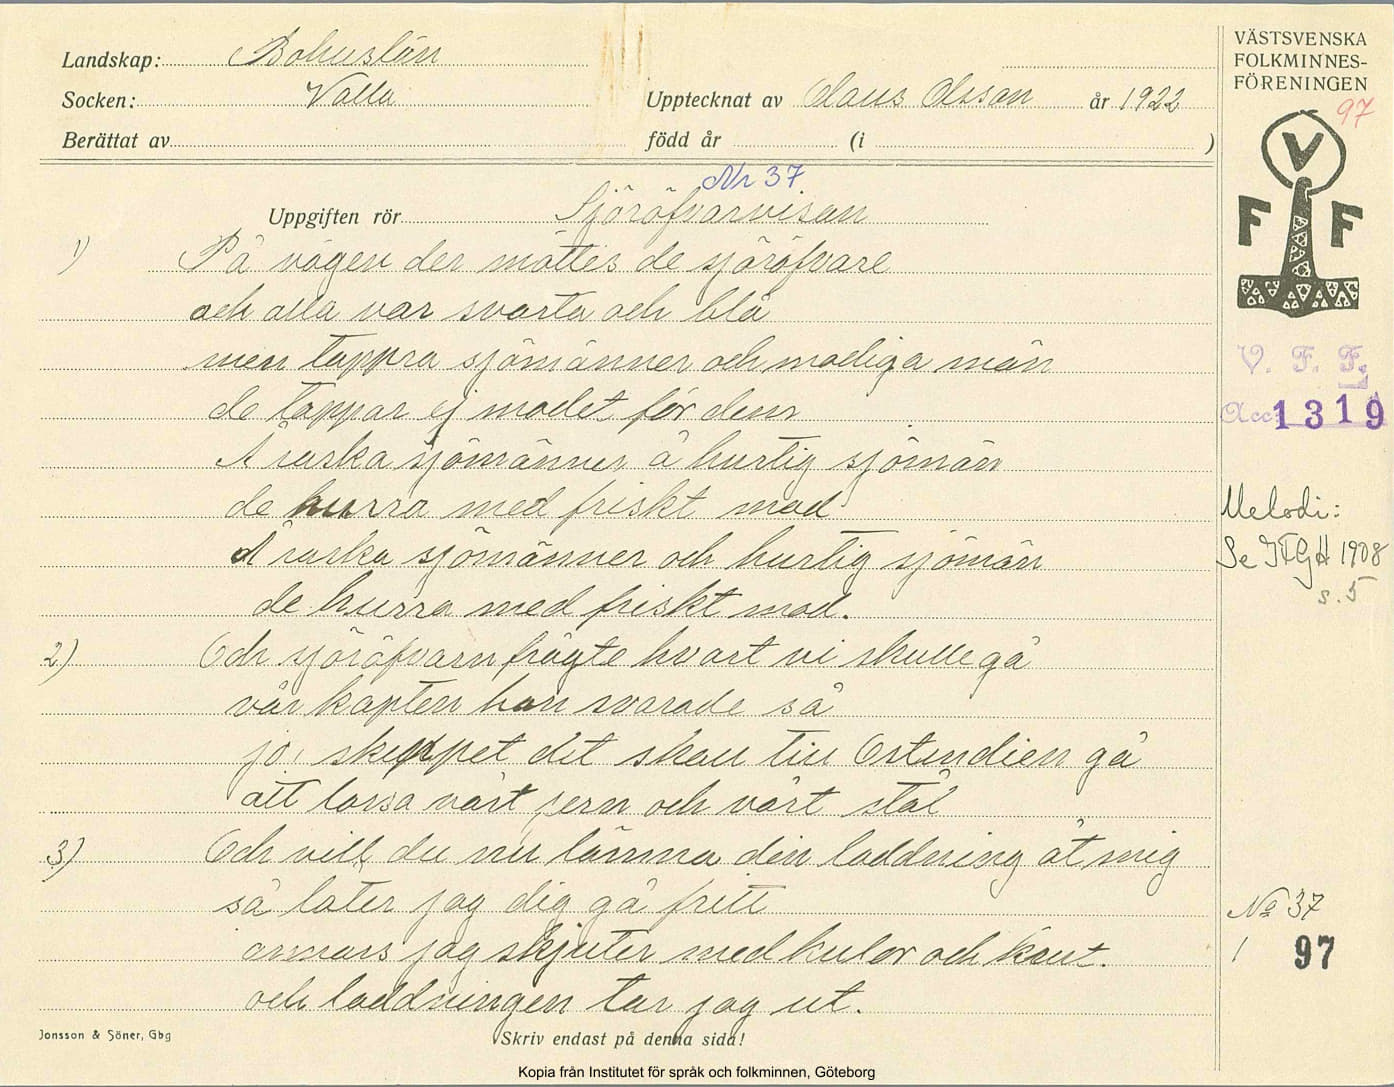 Landskap: Bohuslän
Socken: Valla
Upptecknat av Olaus Olsson år 1922
Berättat av
född år (i )
Nr 37
Uppgiften rör Sjöröfvarvisan
1) På vägen der möttes de sjöröfvare
och alla var svarta och blå
men tappra sjömänner och modiga män
de tappar ej modet för dem
Å raska sjömänner å hurtig sjömän
de hurra med friskt mod
Å raska sjömänner och hurtig sjömän
de hurra med friskt mod.
2) Och sjöröfvarn frågte hvart vi skulle gå
vår kapten han svarade så
jo, skeppet det skall till Ostindien gå
att lossa vårt jern och vårt stål
3) Och vill du nu lämna din laddning åt mig
så låter jag dig gå fritt
annars jag skjuter med kulor och krut.
och laddningen tar jag ut.
Jonsson & Söner, Gbg
Skriv endast på denna sida!
VÄSTSVENSKA
FOLKMINNES-
FÖRENINGEN
97
V
F F
V. F. F.
Acc. 1319
Melodi:
Se IFGH 1908
s. 5
No 37
1 97
Kopia från Institutet för språk och folkminnen, Göteborg